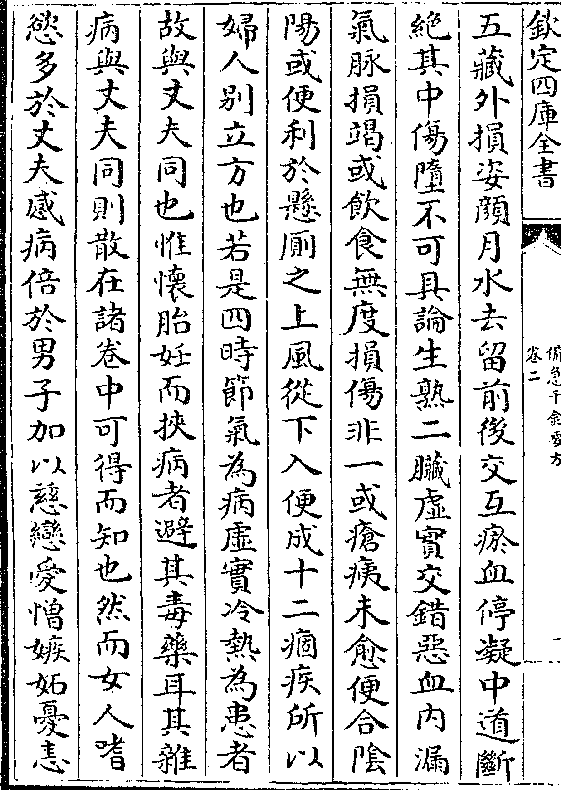 欽定四庫全書
備急千金要方
卷二
一
五藏外損姿顔月水去留前後交互瘀血停凝中道斷
絶其中傷墮不可具論生熟二臟虛實交錯惡血内漏
氣脉損竭或飲食無度損傷非一或瘡痍未愈便合陰
陽或便利於懸厠之上風從下入便成十二痼疾所以
婦人别立方也若是四時節氣為病虛實冷熱為患者
故與丈夫同也惟懷胎妊而挾病者避其毒藥耳其雜
病與丈夫同則散在諸卷中可得而知也然而女人嗜
慾多於丈夫感病倍於男子加以慈戀愛憎嫉妬憂恚